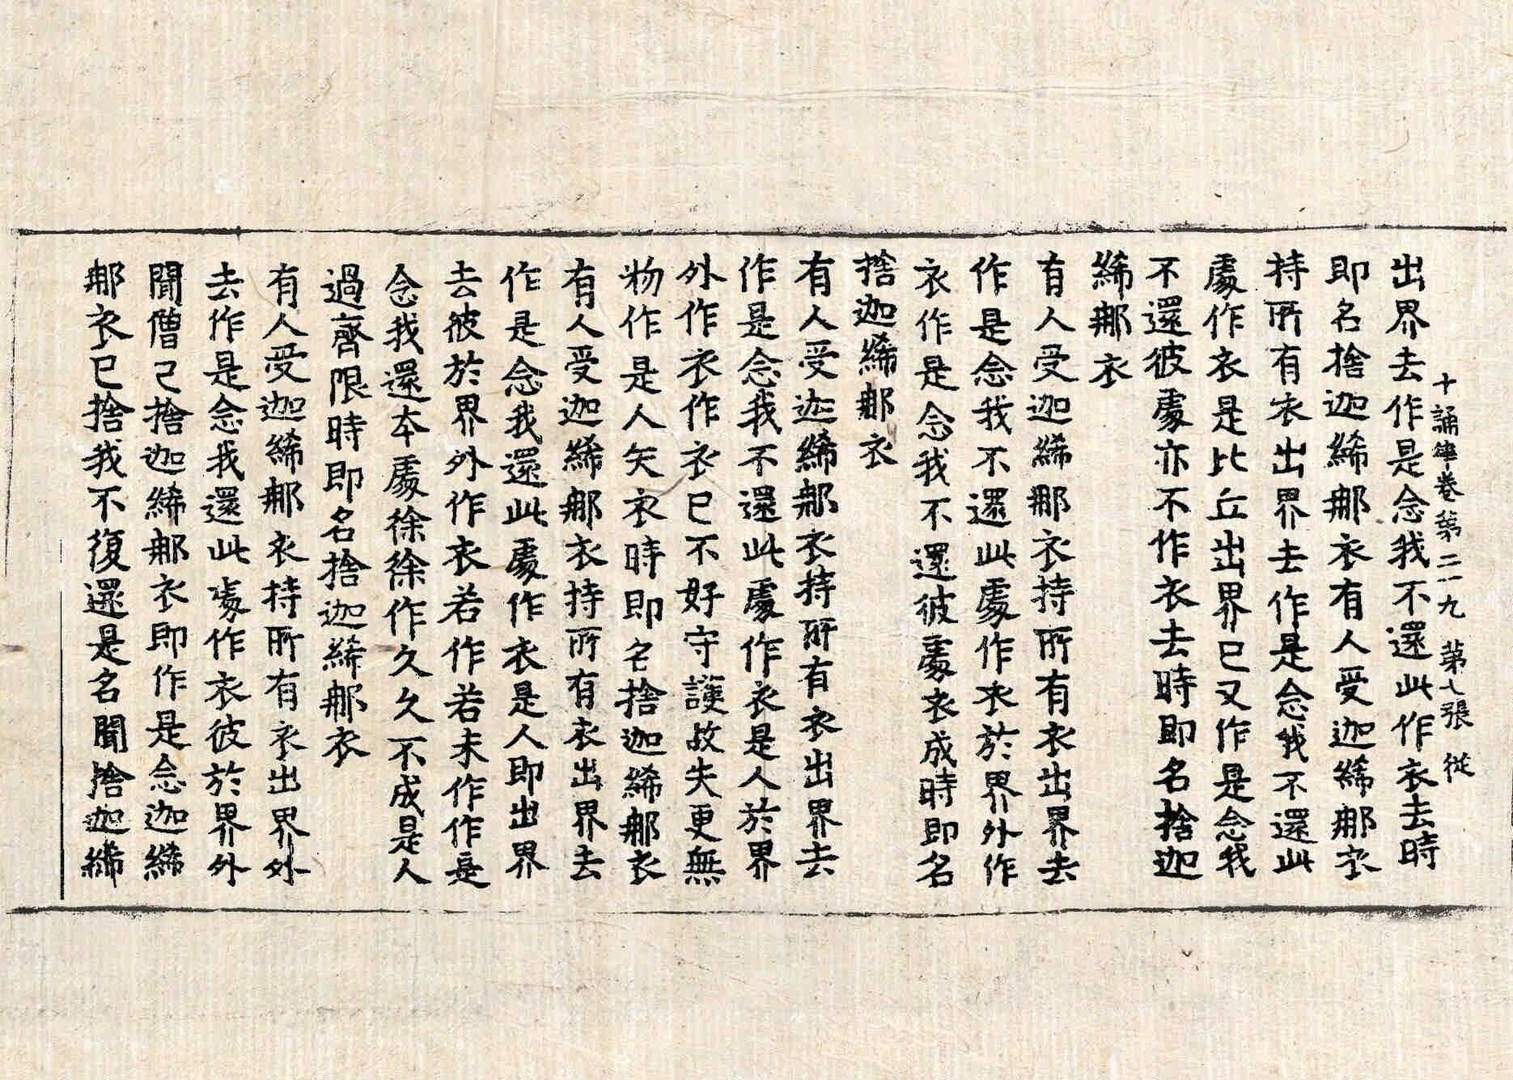 十誦律卷第二十九 第七張 從
出界去作是念我不還此作衣去時
即名捨迦絺那衣有人受迦絺那衣
持所有衣出界去作是念我不還此
處作衣是比丘出界已又作是念我
不還彼處亦不作衣去時即名捨迦
絺那衣
有人受迦絺那衣持所有衣出界去
作是念我不還此處作衣於界外作
衣作是念我不還彼處衣成時即名
捨迦絺那衣
有人受迦絺那衣持所有衣出界去
作是念我不還此處作衣是人於界
外作衣作衣已不好守護故失更無
物作是人失衣時即名捨迦絺那衣
有人受迦絺那衣持所有衣出界去
作是念我還此處作衣是人即出界
去彼於界外作衣若作若未作作是
念我還本處徐徐作久久不成是人
過齊限時即名捨迦絺那衣
有人受迦絺那衣持所有衣出界外
去作是念我還此處作衣彼於界外
聞僧已捨迦絺那衣即作是念迦絺
那衣已捨我不復還是名聞捨迦絺